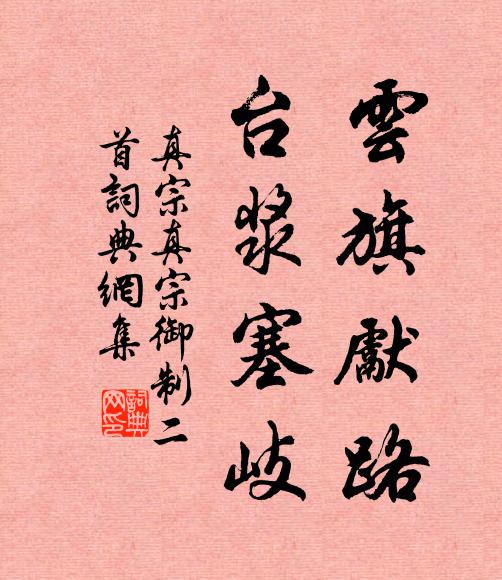 雲旗獻路
台漿塞岐
真宗真宗御制二
首詞典網集
詞典网印